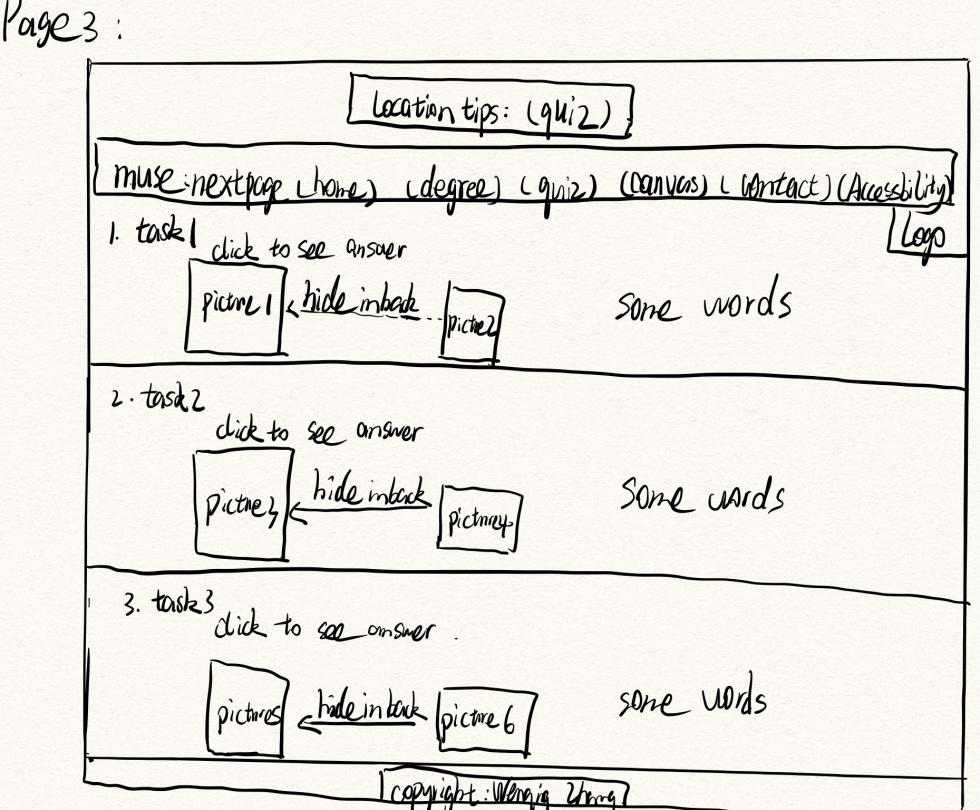 Page 3 :
Location tips: (quiz)
muse: nextpage (home) (degree) (quiz) (canvas) (contact) (Accessbility)
Logo
1. task1
click to see answer
picture 1
hide in back
pictre2
some words
2. task2
click to see answer
pictre3
hide in back
picture4
some words
3. task3
click to see answer .
picture5
hide in back
picture 6
some words
copyright : Zhang